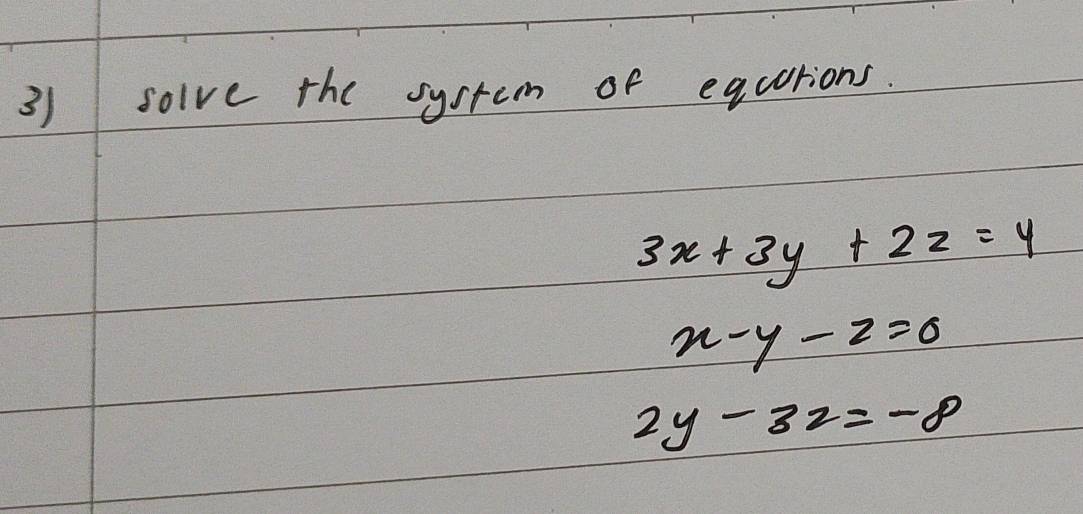 3) solve the system of equations.
3x + 3y + 2z = 4
x - y - z = 0
2y - 3z = -8